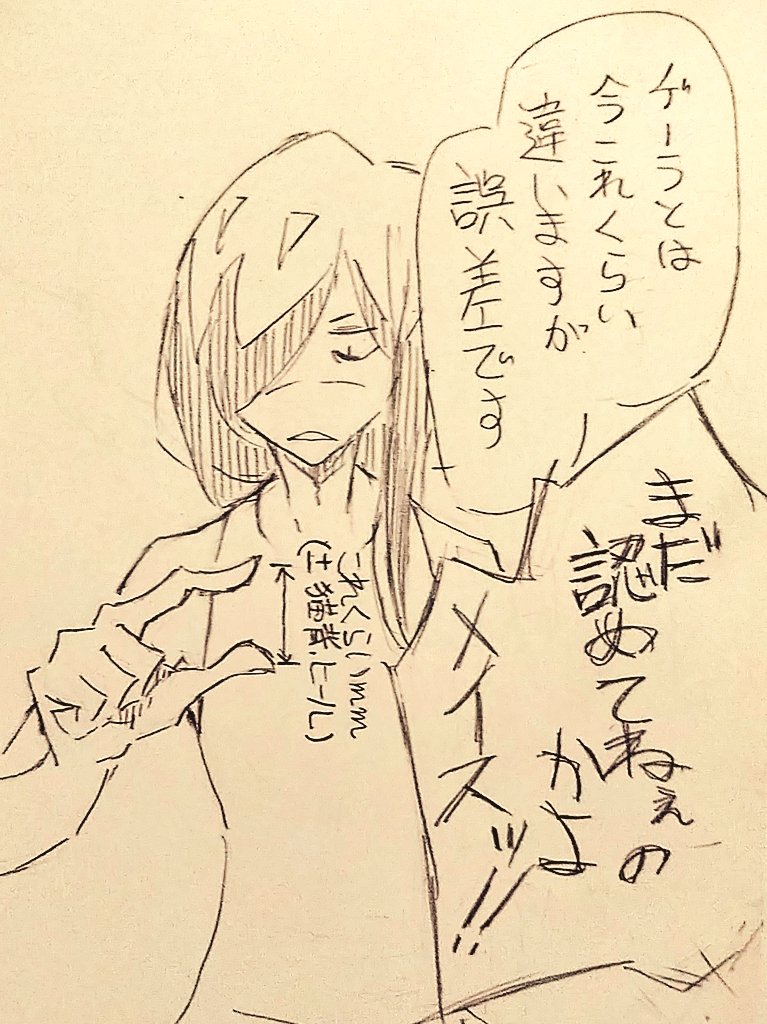 ゲーラとは
今これくらい
違いますが
誤差です
まだ
認めてねぇの
かよ
メイスッ!!
これくらいmm
(±猫背、ヒール)